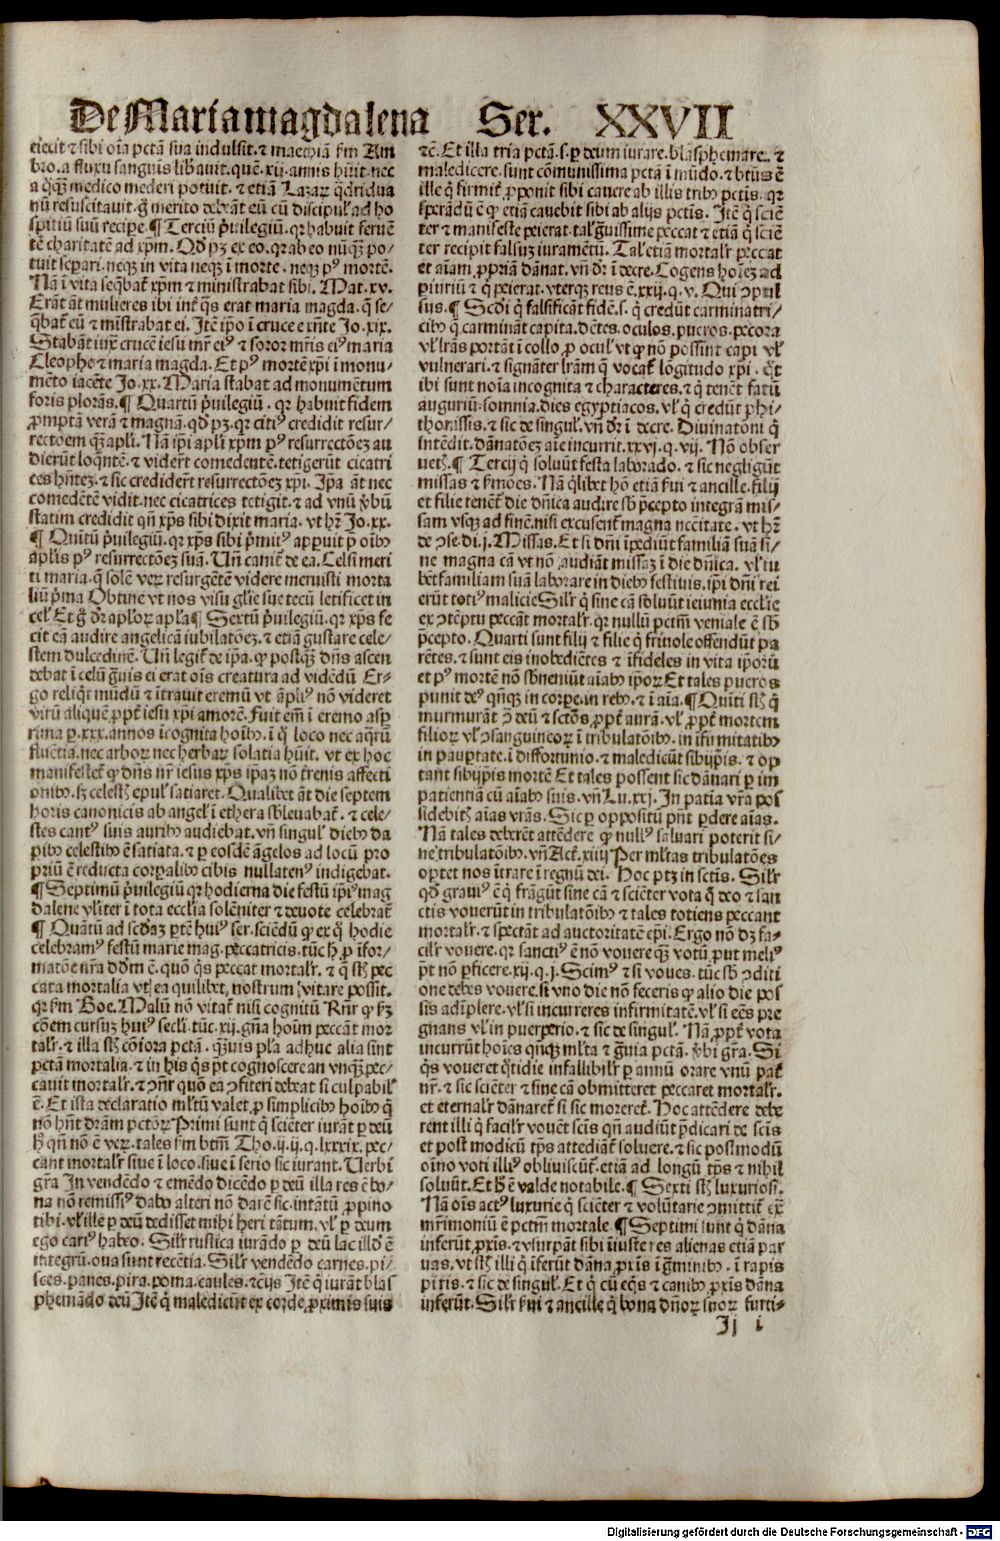 De Maria magdalena Ser. XXVII
eiecit ⁊ sibi oīa pctā sua indulsit. ⁊ marthā ẜm Am
bro. a fluxu sanguis liƀauit. quē. xij. annis hūit. nec
a q̄qȝ medico mederi potuit. ⁊ etiā Lazaꝝ q̄driduā
nū resuscitauit. g̊ merito debeāt eū cū discipulꝭ ad ho
spitiū suū recipe. ¶ Terciū p̄uilegiū. qꝛ habuit feruē
tē charitatē ad xp̄m. Qd̓ pȝ ex eo. qꝛ ab eo nūqȝ po/
tuit separi. neqȝ in vita neqȝ ī morte. neqȝ pꝰ mortē.
Nā ī vita seq̄bat̄ xp̄m ⁊ ministrabat sibi. Mat. xv.
Erāt āt mulieres ibi int̄ q̄s erat maria magda. q̄ se/
q̄bat̄ eū ⁊ mīstrabat ei. Itē ip̄o ī cruce exn̄te Jo. xix.
Stabāt iux̄ crucē iesu mr̄ eiꝰ ⁊ soror mr̄is eiꝰ maria
Cleophe ⁊ maria magda. Et pꝰ mortē xp̄i ī monu/
mēto iacēte Jo. xx. Maria stabat ad monumentum
foris plorās. ¶ Quartū p̄uilegiū. qꝛ habuit fidem
ꝓmptā verā ⁊ magnā. qd̓ pȝ. qꝛ citiꝰ credidit resur/
rectōem qȝ apl̄i. Nā ip̄i apl̄i xp̄m pꝰ resurrectōeȝ au
dierūt loq̄ntē. ⁊ viderūt comedentē. tetigerūt cicatri
ces hn̄teȝ. ⁊ sic crediderūt resurrectōeȝ xp̄i. Ip̄a āt nec
comedētē vidit. nec cicatrices tetigit. ⁊ ad vnū v̄bū
statim credidit qn̄ xp̄s sibi dixit maria. vt hr̄ Jo. xx.
¶ Quītū p̄uilegiū. qꝛ xp̄s sibi p̄mitꝰ apparuit p̄ oībꝰ
aplis pꝰ resurrectōeȝ suā. Vn̄ canit̄ de ea. Celsi meri
ti maria. q̄ solē veꝝ resurgētē videre meruisti morta
liū p̄ma Obtine vt nos visu glīe sue tecū letificet in
cel̓. Et g̊ dr̄ apl̓oꝝ apl̓a ¶ Sextū p̄uilegiū. qꝛ xp̄s fe
cit eā audire angelicā iubilatōeȝ. ⁊ etiā gustare cele/
stem dulcedinē. Vn̄ legit̄ de ip̄a. qꝙ postqȝ dn̄s ascen
debat ī celū g̊uis ei erat oīs creatura ad vidēdū Er/
go reliq̄t mūdū ⁊ ītrauit eremū vt āpliꝰ nō videret
virū aliquē ꝓpt̄ iesu xp̄i amorē. Fuit em̄ ī eremo aspi
rima ꝑ. xxx. annos īcognita hoībꝰ. ī q̄ loco nec aq̄rū
fluētia. nec arboꝝ nec herbaꝝ solatia hūit. vt ex hoc
manifestet̄ qꝙ dn̄s nr̄ iesus xp̄s ip̄aȝ nō t̄renis affecti
onibꝰ. sȝ celestibꝰ epul̓ satiaret. Qualibet āt die septem
horis canonicis ab angel̓ ī ethera sb̓leuabat̄. ⁊ cele/
stes cantꝰ suis auribꝰ audiebat. vn̄ singul̓ diebꝰ da
pibꝰ celestibꝰ ē satiata. ⁊ ꝑ eosdē āgelos ad locū pro
priū ē reducta corꝑalibꝰ cibis nullatenꝰ indigebat.
¶ Septimū p̄uilegiū qꝛ hodierna die festū ip̄iꝰ mag
dalene vl̓iter ī tota eccl̓ia solēniter ⁊ deuote celebrat̄
¶ Quātū ad sc̄daȝ ꝑtē huiꝰ ser. sciēdū qꝙ ex q̄ hodie
celebramꝰ festū marie mag. peccatricis. tūc h̓ ꝓ īfor/
matōe nr̄a dd̓m ē. quō q̄s peccat mortal̓r. ⁊ q̄ st̓ pec
cata mortalia vt ea quilibet nostrum vitare possit.
qꝛ ẜm Boe. Malū nō vitat̄ nisi cognitū Rn̄r qꝙ ẜȝ
cōem cursuȝ huiꝰ secl̓i. tūc. xij. gn̄a hoīm peccāt mor
tal̓r. ⁊ illa st̓ cōiora pctā. q̄uis pl̓a adhuc alia sint
pctā mortalia. ⁊ in his q̄s pt̄ cognoscere an vnqȝ pec/
cauit mortal̓r. ⁊ ꝯn̄r quō ea ꝯfiteri debeat si culpabil̓
ē. Et ista declaratio ml̓tū valet ꝓ simplicibꝰ hoībꝰ q̄
nō hn̄t dr̄am pctōꝝ Primi sunt q̄ sciēter iurāt ꝑ deū
h̓ qn̄ nō ē veꝝ. tales ẜm btm̄ Tho. ij. ij. q. lxxxix. pec/
cant mortal̓r siue ī loco. siue ī serio sic iurant. Verbi
gr̄a In vendēdo ⁊ emēdo dicēdo ꝑ deū illa res ē bo/
na nō remissiꝰ dabo alteri nō darē sic. intātū ꝓpino
tibi. vl̓ ille ꝑ deū dedisset mihi heri tātum. vl̓ ꝑ deum
ego cariꝰ habeo. Sil̓r rustica iurādo ꝑ deū lac illd̓ ē
integrū. oua sunt recētia. Sil̓r vendēdo carnes. pi/
sces. panes. pira. poma. caules. ⁊ceijs Itē q̄ iurāt blas
phemādo deū Itē q̄ maledicūt ex corde ꝓximis suis
⁊c̄. Et illa tria pctā. s. ꝑ deum iurare. blasphemare. ⁊
maledicere. sunt cōmunissima pctā ī mūdo. ⁊ btūs ē
ille q̄ firmit̄ ꝓponit sibi cauere ab illis tribꝰ pctis. qꝛ
sperādū ē qꝙ etiā cauebit sibi ab alijs pctis. Itē q̄ sciē
ter ⁊ manifeste peierat. tal̓ g̊uissime peccat ⁊ etiā q̄ sciē
ter recipit falsuȝ iuramētū. Tal̓ etiā mortal̓r peccat
et aīam ꝓpriā dānat. vn̄ dr̄ ī decre. Cogens hoīeȝ ad
ꝑiuriū ⁊ q̄ peierat. vterqȝ reus ē. xxij. q. v. Qui ꝯpul
sus. ¶ Sc̄di q̄ falsificāt fidē. s. q̄ credūt carminatri/
cibꝰ q̄ carmināt capita. dētes. oculos. pueros. pecora
vl̓ lr̄as portāt ī collo ꝓ ocul̓ vt qꝙ nō possint capi vl̓
vulnerari. ⁊ signāter lr̄am q̄ vocat̄ lōgitudo xp̄i. q̄t
ibi sunt noīa incognita ⁊ characteres. ⁊ q̄ tenēt fatū
auguriū. somnia. dies egyptiacos. vl̓ q̄ credūt phi/
thonissis. ⁊ sic de singul̓. vn̄ dr̄ ī decre. Diuinatōni q̄
intēdit. dānatōeȝ aīe incurrit. xxvi. q. vij. Nō obser
uetis. ¶ Tercij q̄ soluūt festa laborādo. ⁊ sic negligūt
missas ⁊ ẜmōes. Nā q̄libet hō etiā ẜui ⁊ ancille. filij
et filie tenet̄ die dn̄ica audire sb̓ p̄cepto integrā mis/
sam vsqȝ ad finē. nisi excusent̄ magna nc̄citate. vt hr̄
de ꝯse. di. j. Missas. Et si dn̄i īpediūt familiā suā si/
ne magna cā vt nō audiāt missaȝ ī die dn̄ica. vl̓ iu
bēt familiam suā laborare in diebꝰ festiuis. ip̄i dn̄i rei
erūt totiꝰ malicie Sil̓r q̄ sine cā soluūt ieiunia eccl̓ie
ex ꝯtēptu peccāt mortal̓r. qꝛ nullū pctm̄ veniale ē sb̓
p̄cepto. Quarti sunt filij ⁊ filie q̄ friuole offendūt pa
rētes. ⁊ sunt eis inobediētes ⁊ īfideles in vita ip̄oꝝ
et pꝰ mortē nō sb̓ueniūt aīabꝰ ip̄oꝝ Et tales pueros
punit deꝰ qn̄qȝ in corpe. in rebꝰ. ⁊ ī aīa. ¶ Quīti st̓ q̄
murmurāt ꝯ̄ deū ⁊ sctōs ꝓpt̄ aurā. vl̓ ꝓpt̄ mortem
filioꝝ vl̓ ꝯsanguineoꝝ ī tribulatōibꝰ. in īfirmitatibꝰ
in pauꝑtate. ī diffortunio. ⁊ maledicūt sibiip̄is. ⁊ op
tant sibiip̄is mortē Et tales possent sic dānari ꝑ im
patientiā cū aīabꝰ suis. vn̄ Lu. xxj. In patīa vr̄a pos
sidebitis aīas vr̄as. Sic ꝑ oppositū pn̄t ꝑdere aīas.
Nā tales deberēt attēdere qꝙ nullꝰ saluari poterit si/
ne tribulatōibꝰ. vn̄ Act̄. xiiij Per ml̓tas tribulatōes
oꝑtet nos ītrare ī regnū dei. Hoc ptȝ in sctīs. Sil̓r
qd̓ grauiꝰ ē q̄ frāgūt sine cā ⁊ sciēter vota q̄ deo ⁊ san
ctis vouerūt in tribulatōibꝰ ⁊ tales totiens peccant
mortal̓r. ⁊ spectāt ad auctoritatē ep̄i. Ergo nō dȝ fa/
cil̓r vouere. qꝛ sanctiꝰ ē nō vouere qȝ votū ꝓut meliꝰ
pt̄ nō ꝑficere. xij. q. j. Scimꝰ ⁊ si voues. tūc sb̓ ꝯditi
one debes vouere. si vno die nō feceris qꝙ alio die pos
sis adīplere. vl̓ si incurreres infirmitatē. vl̓ si eēs pre
gnans vl̓ in puerperio. ⁊ sic de singul̓. Nā ꝓpt̄ vota
incurrūt hoīes qn̄qȝ ml̓ta ⁊ g̊uia pctā. v̄bi gr̄a. Si
q̄s voueret q̄tidie infallibil̓r ꝑ annū orare vnū pat̄
nr̄. ⁊ sic sciēter ⁊ sine cā obmitteret peccaret mortal̓r.
et eternal̓r dānaret̄ si sic moreret̄. Hoc attēdere debe
rent illi q̄ facil̓r vouēt sctīs qn̄ audiūt p̄dicari de sctīs
et post modicū tp̄s attediāt̄ soluere. ⁊ sic postmodū
oīno voti illiꝰ obliuiscūt̄. etiā ad longū tp̄s ⁊ nihil
soluūt. Et h̓ ē valde notabile. ¶ Sexti st̓ luxuriosi.
Nā oīs actꝰ luxurie q̄ sciēter ⁊ volūtarie ꝯmittit̄ ex̄
mr̄imoniū ē pctm̄ mortale. ¶ Septimi sunt q̄ dāna
inferūt ꝓxīs. ⁊ vsurpāt sibi īiuste res alienas etiā par
uas. vt st̓ illi q̄ īferūt dāna ꝓxīs ī g̊minibꝰ. ī rapis
piris. ⁊ sic de singul̓. Et q̄ cū eq̄s ⁊ canibꝰ ꝓxīs dāna
inferūt. Sil̓r ẜui ⁊ ancille q̄ bona dn̄oꝝ suoꝝ furti/
Ij i
Digitalisierung gefördert durch die Deutsche Forschungsgemeinschaft - DFG